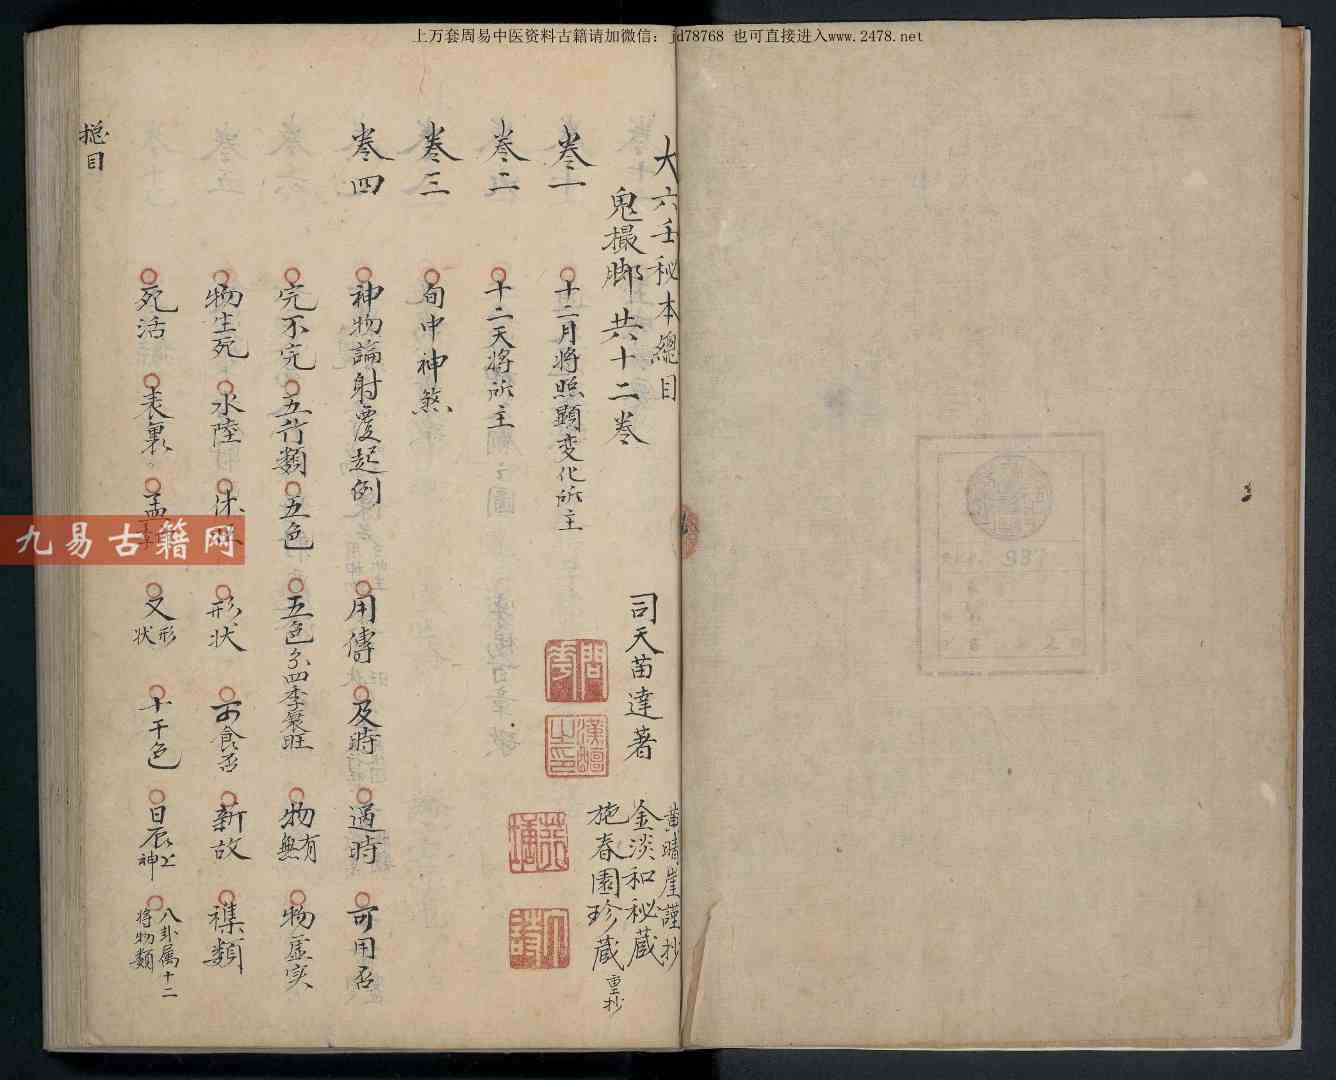 上万套周易中医资料古籍请加微信：jd78768 也可直接进入www.2478.net
大六壬秘本總目
鬼撮脚共十二卷
司天苗達著
黄晴崖謹抄
金淡和秘蔵
施春園珍蔵 重抄
卷一 十二月将照顕変化所主
卷二 十二天将所主
卷三 旬中神煞
卷四 神物論射覆起例 用傳 及時 過時 可用否
完不完 五行類 五色 五色分四季衰旺 物有無 物虚实
物生死 水陸 形状 可食否 新故 襍類
死活 表裏 盖 又形状 十干色 日辰上神 八卦属十二将物類
揔目
九易古籍网
987